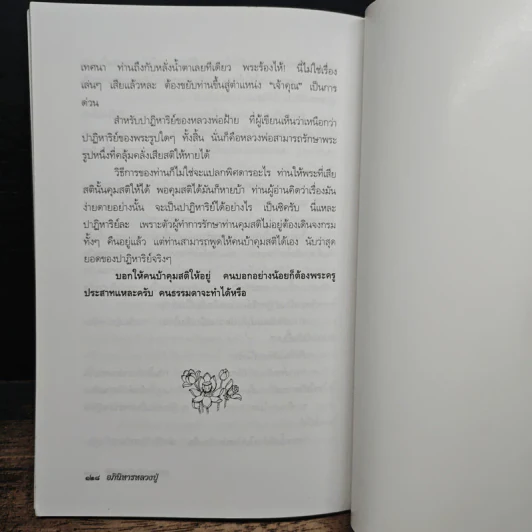 เทศนา ท่านถึงกับหลั่งน้ำตาเลยทีเดียว พระร้องไห้! นี่ไม่ใช่เรื่อง
เล่นๆ เสียแล้วหละ ต้องขยับท่านขึ้นสู่ตำแหน่ง "เจ้าคุณ" เป็นการ
ด่วน
สำหรับปาฏิหาริย์ของหลวงพ่อฝ้าย ที่ผู้เขียนเห็นว่าเหนือกว่า
ปาฏิหาริย์ของพระรูปใดๆ ทั้งสิ้น นั่นก็คือหลวงพ่อสามารถรักษาพระ
รูปหนึ่งที่คลุ้มคลั่งเสียสติให้หายได้
วิธีการของท่านก็ไม่ใช่จะแปลกพิศดารอะไร ท่านให้พระที่เสีย
สตินั้นคุมสติให้ได้ พอคุมสติได้มันก็หายบ้า ท่านผู้อ่านคิดว่าเรื่องมัน
ง่ายดายอย่างนั้น จะเป็นปาฏิหาริย์ได้อย่างไร เป็นซิครับ นี่แหละ
ปาฏิหาริย์ละ เพราะตัวผู้ทำการรักษาท่านคุมสติไม่อยู่ต้องเดินจงกรม
ทั้งๆ คืนอยู่แล้ว แต่ท่านสามารถพูดให้คนบ้าคุมสติได้เอง นับว่าสุด
ยอดของปาฏิหาริย์จริงๆ
บอกให้คนบ้าคุมสติให้อยู่ คนบอกอย่างน้อยก็ต้องพระครู
ประสาทแหละครับ คนธรรมดาจะทำได้หรือ
๑๒๘ อภินิหารหลวงปู่